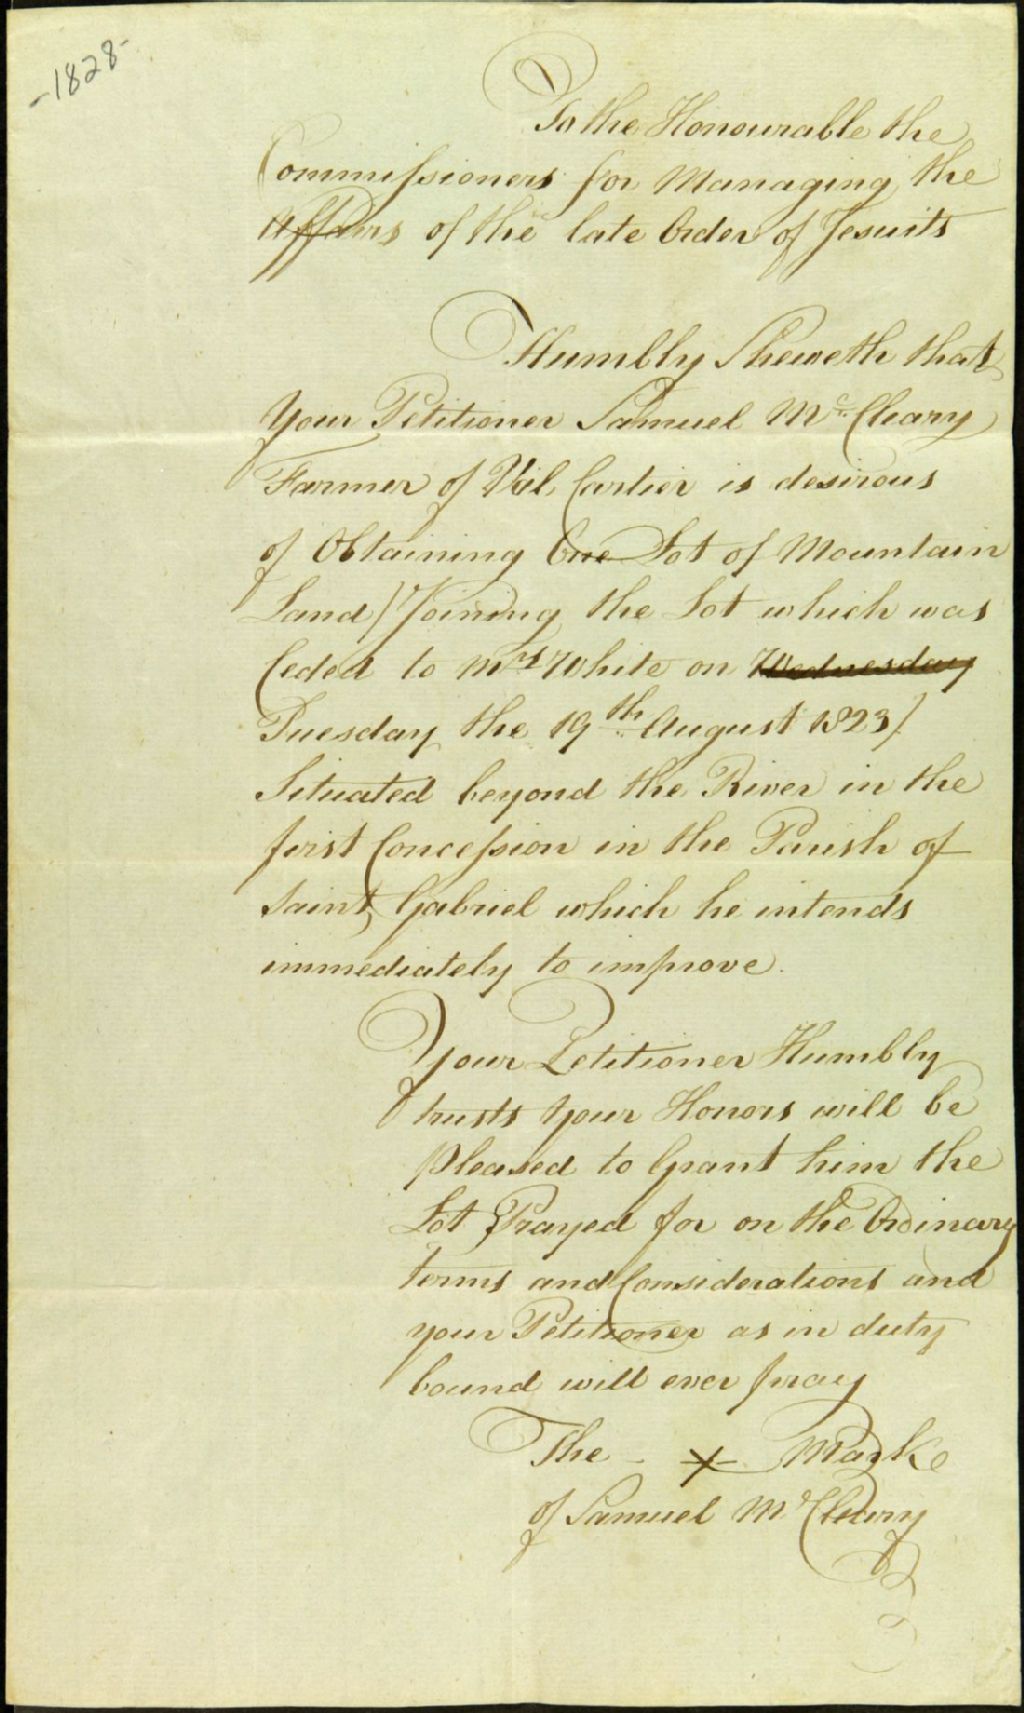 -1828-
To the Honourable the
Commissioners for Managing the
Affairs of the late Order of Jesuits
Humbly Sheweth that
Your Petitioner Samuel Mc Cleary
Farmer of Val Cartier is desirous
of Obtaining One Lot of Mountain
Land / Joining the Lot which was
Ceded to Mrs White on Wednesday
Tuesday the 19th August 1823 /
Situated beyond the River in the
first Concession in the Parish of
Saint Gabriel which he intends
immediately to improve.
Your Petitioner Humbly
trusts Your Honors will be
pleased to Grant him the
Lot Prayed for on the Ordinary
terms and Considerations and
your Petitioner as in duty
bound will ever pray
The X Mark
of Samuel Mc Cleary